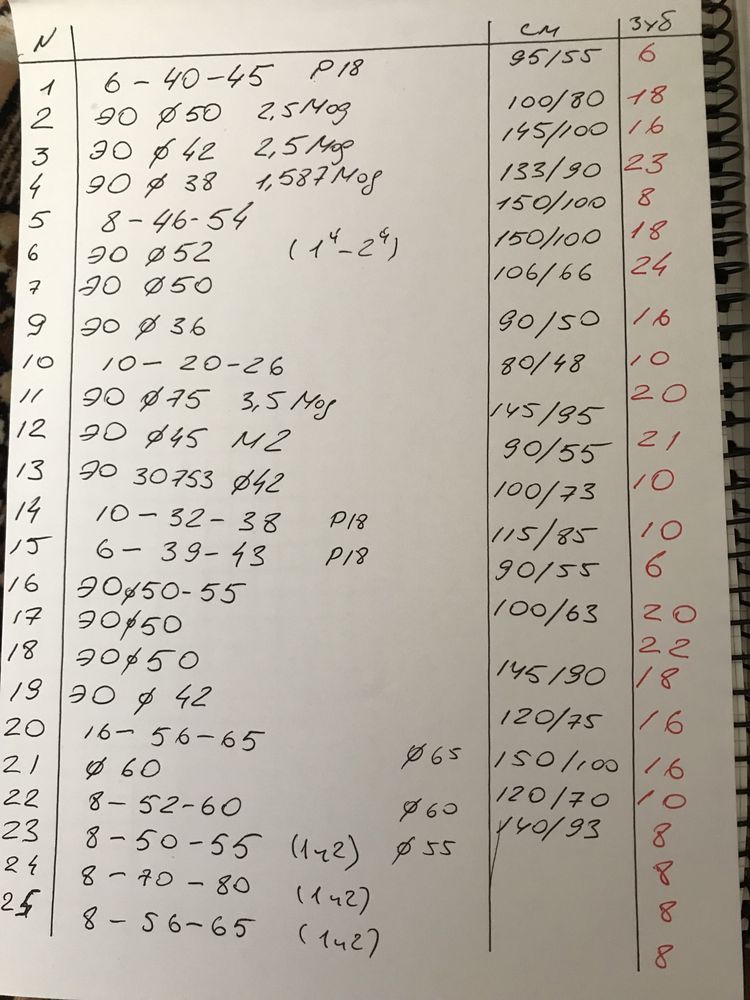 N см Зуб
1 6 – 40 – 45 Р18 95/55 6
2 ЭО ø50 2,5Мод 100/80 18
3 ЭО ø 42 2,5Мод 145/100 16
4 ЭО ø 38 1,587Мод 133/90 23
5 8 – 46 - 54 150/100 8
6 ЭО ø52 (1ч – 2ч) 150/100 18
7 ЭО ø50 106/66 24
9 ЭО ø 36 90/50 16
10 10 – 20 - 26 80/48 10
11 ЭО ø75 3,5 Мод 145/95 20
12 ЭО ø45 М2 90/55 21
13 ЭО 30753 ø42 100/73 10
14 10 – 32 – 38 Р18 115/85 10
15 6 – 39 – 43 Р18 90/55 6
16 ЭОø50-55 100/63 20
17 ЭОø50 22
18 ЭОø50 145/90 18
19 ЭО ø 42 120/75 16
20 16 – 56 – 65 150/100 16
21 ø 60 ø65 120/70 10
22 8 – 52-60 ø60 140/93 8
23 8 – 50 – 55 (1ч2) ø55 8
24 8 – 70 – 80 (1ч2) 8
25 8 – 56 – 65 (1ч2) 8